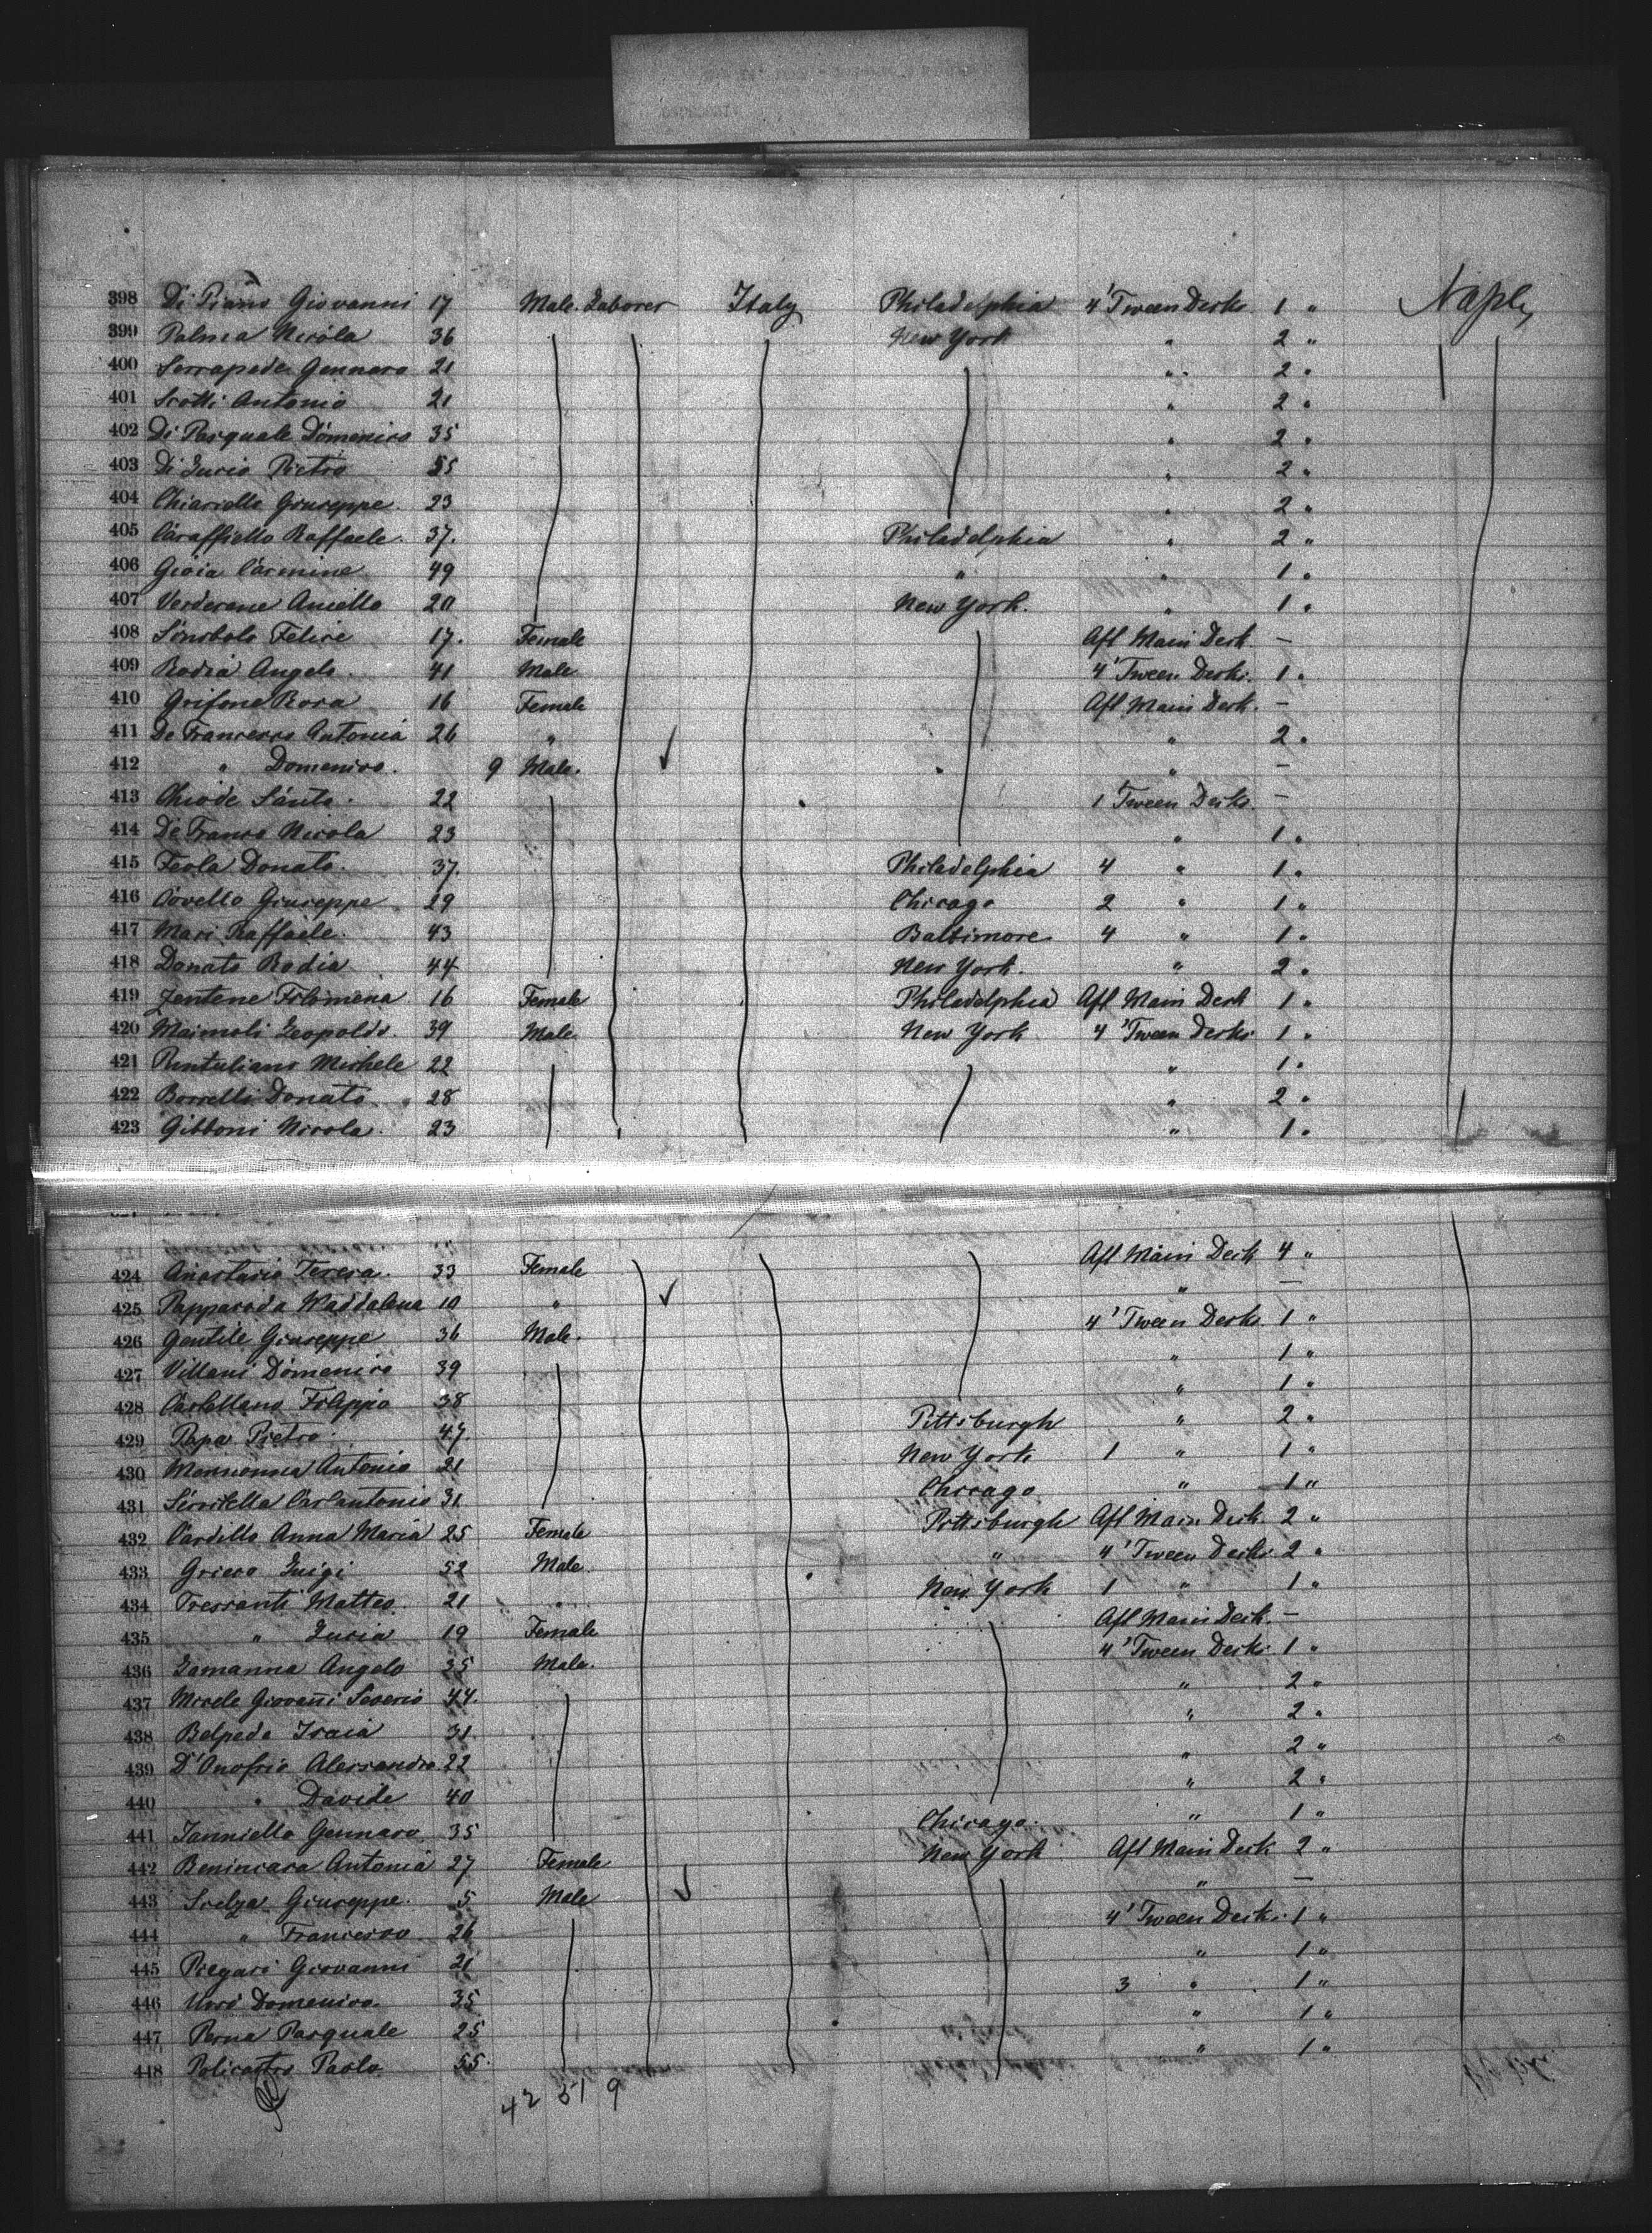 398 Di Piano Giovanni 17 Male. Laborer Italy Philadelphia 4 'Tween Decks 1 " Naples
399 Palma Nicola 36 New York " 2 "
400 Serrapede Gennaro 21 " 2 "
401 Scotti Antonio 21 " 2 "
402 Di Pasquale Domenico 35 " 2 "
403 Di Lucio Pietro 55 " 2 "
404 Chiariello Giuseppe 23 " 2 "
405 Caraffiello Raffaele 37. Philadelphia " 2 "
406 Gioia Carmine 49 " " 1 "
407 Verderame Aniello 20 New York. " 1 "
408 Felice 17. Female Aft Main Deck —
409 Rodia Angelo 41 Male 4 'Tween Decks. 1 "
410 Grifone Rosa 16 Female Aft Main Deck. —
411 De Francesco Antonia 26 " " 2 "
412 " Domenico. 9 Male. " —
413 Chiode Santo 22 1 Tween Decks —
414 De Franco Nicola 23 " 1 "
415 Feola Donato. 37. Philadelphia 4 " 1 "
416 Covello Giuseppe 29 Chicago 2 " 1 "
417 Mari Raffaele. 43 Baltimore 4 " 1 "
418 Donato Rodia 44 New York. " 2 "
419 Zentene Filomena 16 Female Philadelphia Aft Main Deck 1 "
420 Maimoli Leopoldo. 39 Male. New York 4 'Tween Decks 1 "
421 Michele 22 " 1 "
422 Borrelli Donato 28 " 2 "
423 Gibboni Nicola. 23 " 1 "
424 Anastasio Teresa. 33 Female Aft Main Deck 4 "
425 Papparoda Maddalena 10 " " —
426 Gentile Giuseppe 36 Male. 4 'Tween Decks 1 "
427 Villani Domenico 39 " 1 "
428 Castellano Filippo 38 " 1 "
429 Papa Pietro. 47. Pittsburgh " 2 "
430 Antonio 21 New York 1 " 1 "
431 Carlantonio 31. Chicago " 1 "
432 Cardillo Anna Maria 25 Female Pittsburgh Aft Main Deck 2 "
433 Grieco Luigi 52 Male. " 4 'Tween Decks 2 "
434 Tressanti Matteo 21 " New York 1 " 1 "
435 " Lucia 19 Female Aft Main Deck —
436 Lamanna Angelo 35 Male. 4 'Tween Decks 1 "
437 Micele Giovanni Saverio 44. " 2 "
438 Belpede Isaia 31 " 2 "
439 D'Onofrio Alessandro 22 " 2 "
440 " Davide 40 " 2 "
441 Ianniello Gennaro 35 Chicago. " 1 "
442 Benincasa Antonia 27 Female New York Aft Main Deck 2 "
443 Scelza Giuseppe. 5 Male " —
444 " Francesco 26 4 'Tween Decks. 1 "
445 Pregari Giovanni 21 " 1 "
446 Domenico. 35 3 " 1 "
447 Perna Pasquale 25 " 1 "
448 Policastro Paolo 55. " 1 "
42 51 9